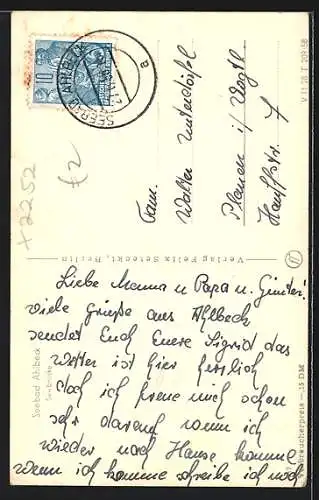 Liebe Mama u Papa u. Günter!
viele grüße aus Ahlbeck
sendet Euch Eure Sigrid das
Wetter ist hier herrlich
doch ich freue mich schon
sehr darauf wenn ich
wieder nach Hause komme
wenn ich komme schreibe ich noch
Fam.
Walter
Plauen i/Vogtl
7
Verlag Felix Setecki, Berlin
Seebad Ahlbeck
Seebrücke
V 11 28 T 209/58
braucherpreis —.15 DM
SEEBAD AHLBECK
a
10
+2252
£2